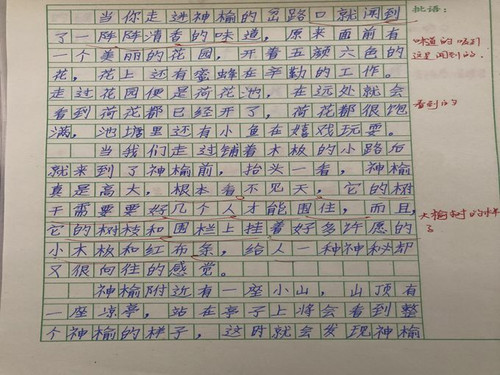 当你走进神榆的岔路口就闻到
了一阵阵清香的味道，原来面前有
一个美丽的花园，开着五颜六色的
花，花上还有蜜蜂在辛勤的工作。
走过花园便是荷花池，在远处就会
看到荷花都已经开了，荷花都很饱
满，池塘里还有小鱼在嬉戏玩耍。
当我们走过铺着木板的小路后
就来到了神榆前，抬头一看，神榆
真是高大，根本看不见天，它的树
干需要要好几个人才能围住，而且，
它的树枝和围栏上挂着好多许愿的
小木板和红布条，给人一种神秘却
又很向往的感觉。
神榆附近有一座小山，山顶有
一座凉亭，站在亭子上将会看到整
个神榆的样子，这时就会发现神榆
批语：
味道的吸引
这里闻到的
看到的
大榆树的